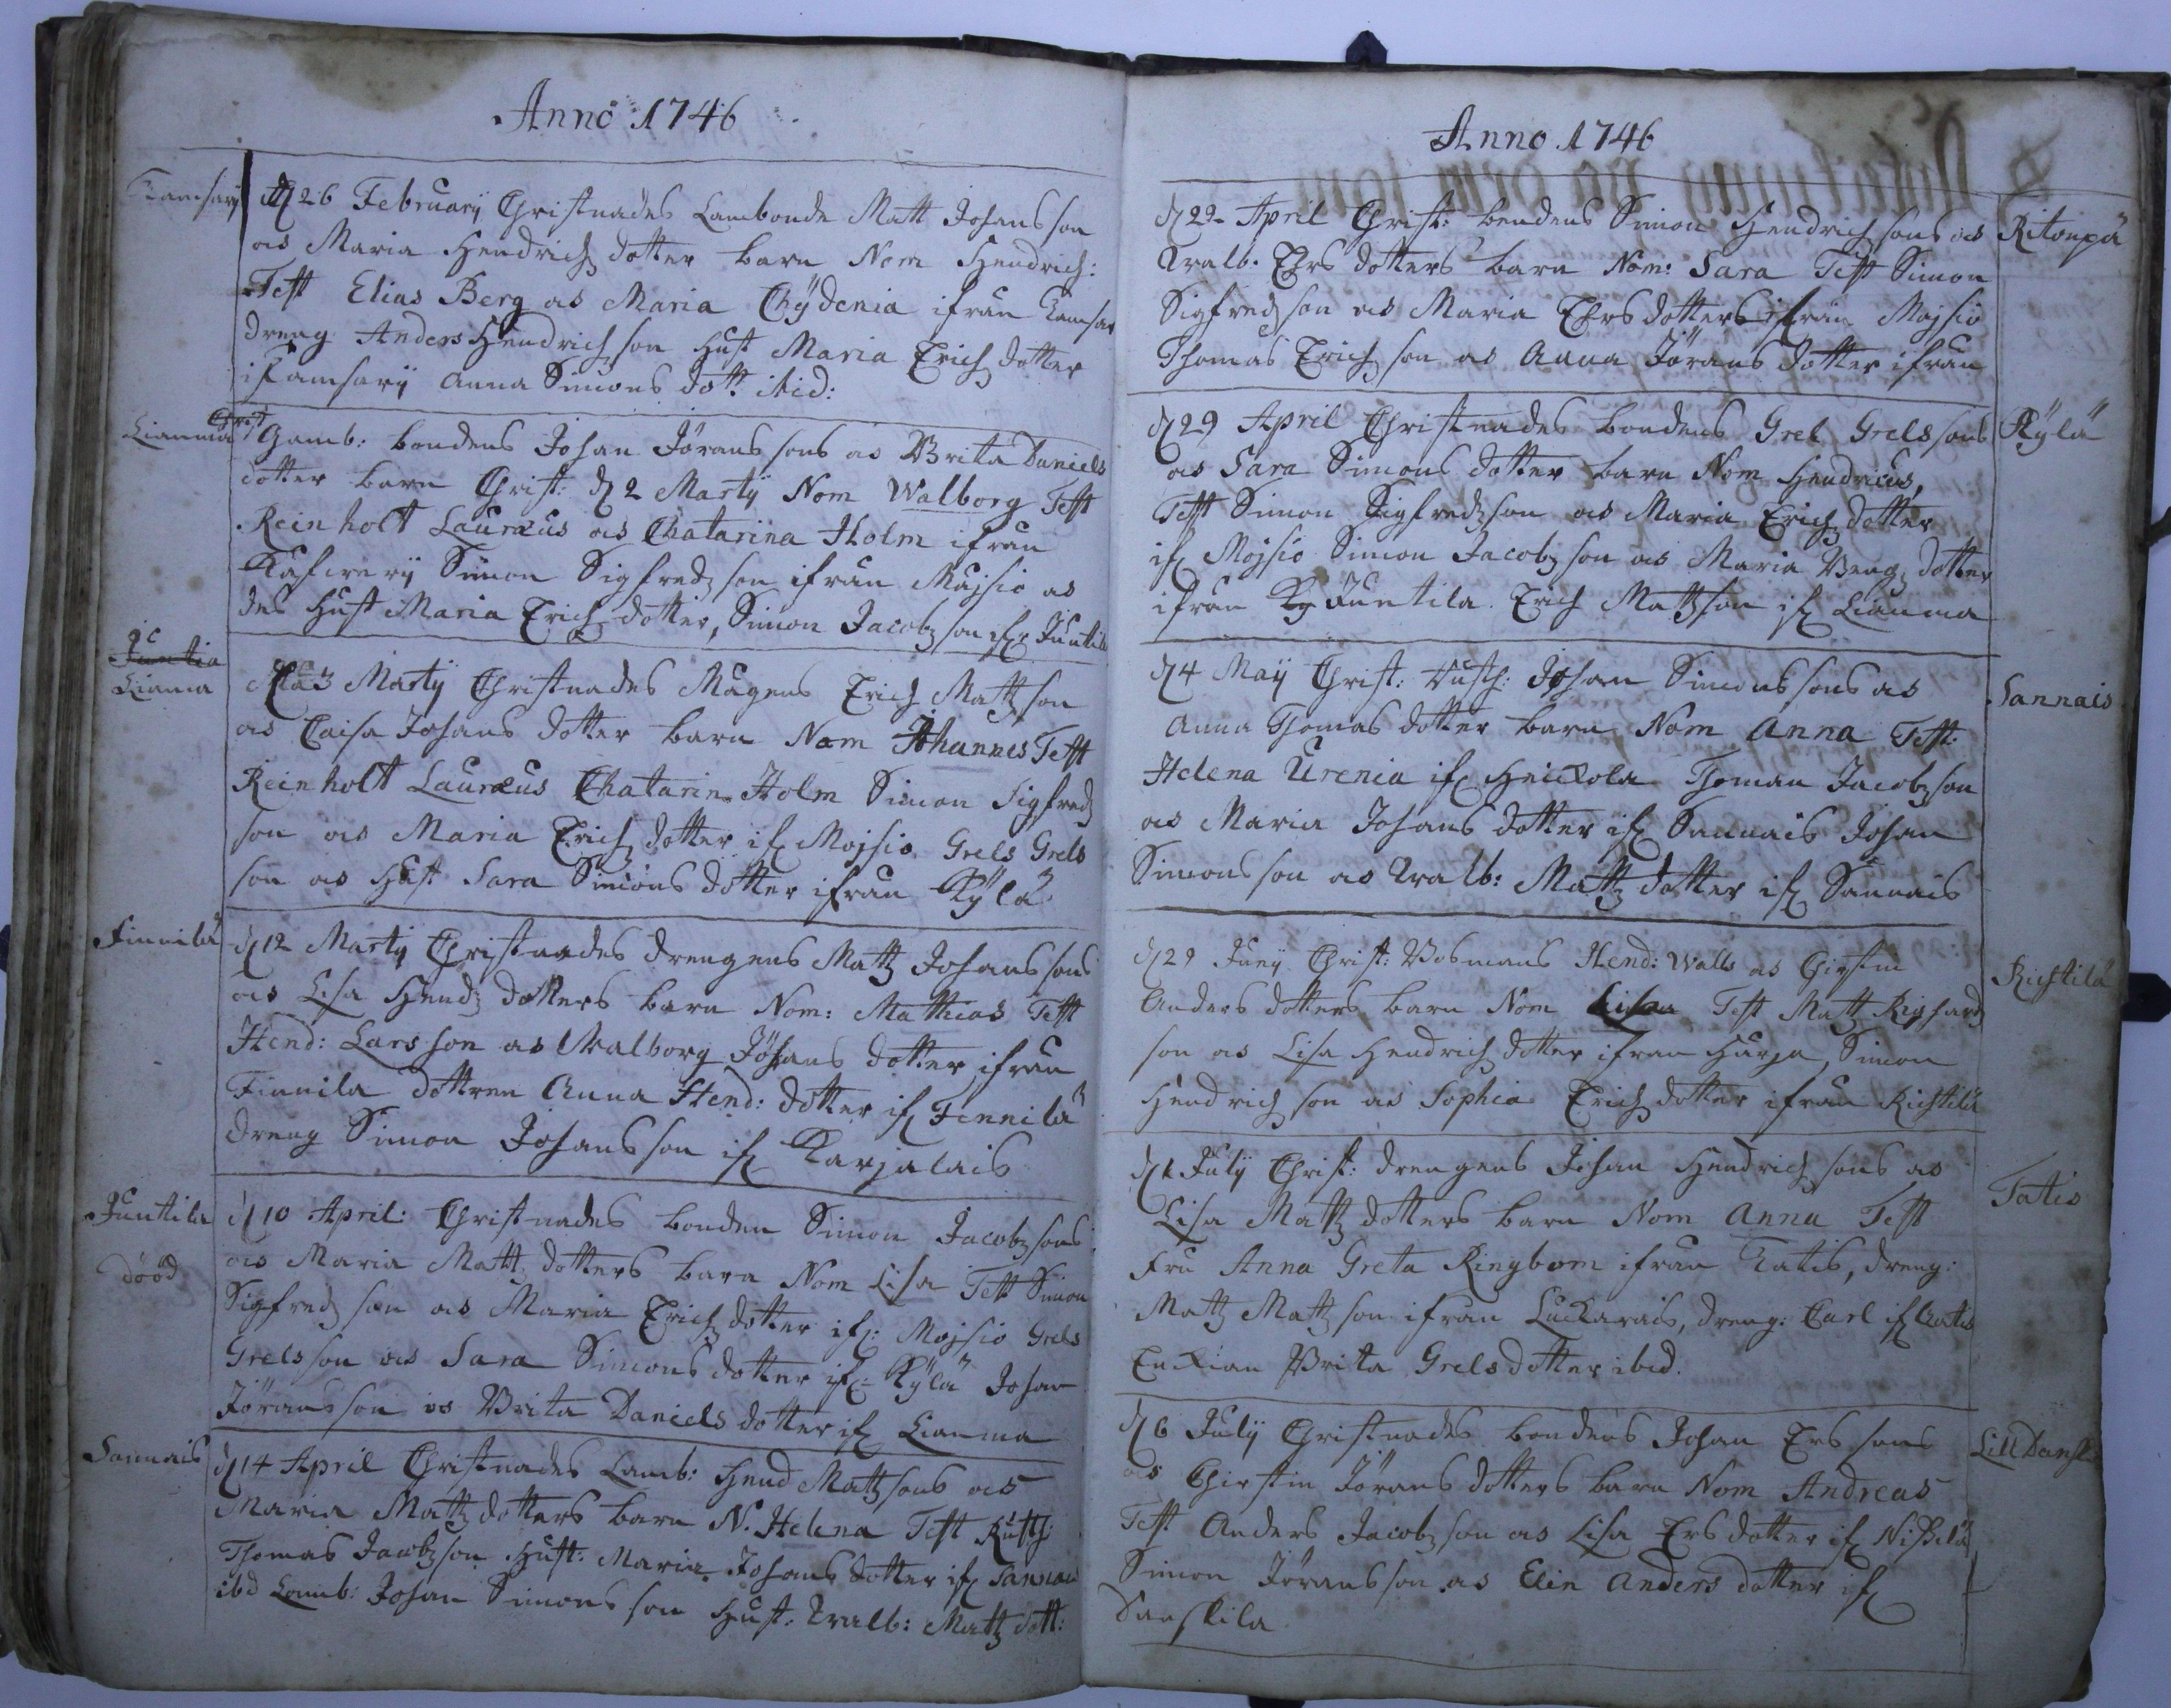 Anno 1746
Kamsarÿ
d 26 Februarÿ Christnades Lambonde Matt Johansson
as Maria Hendrichdotter barn Nom Hendrich:
Test Elias Berg as Maria Chÿdenia ifrån Kamsar
dreng Anders Hendrichson Hust Maria Erichdotter
i Kamsarÿ Anna Simons dott. ibid:
Lianma
Christ
Gamb: bondens Johan Jöransons as Brita Daniels
dotter barn Christ: d 2 Martÿ Nom Walborg Test
Reinholt Lauræus as Chatarina Holm ifrån
Simon Sigfredson ifrån Mojsio as
des Hust Maria Erichdotter, Simon Jacobson ifr Juntila
Juntia
Lianma
d 3 Martÿ Christnades Mågens Erich Mattson
as Caisa Johans dotter barn Nom Johannes Test
Reinholt Lauræus Chatarin Holm Simon Sigfred
son as Maria Erichdotter if Mojsio Grels Grels
son as Hust Sara Simons dotter ifrån Kÿlä
Finnilä
d 12 Martÿ Christnades drengens Mattz Johanssons
as Lisa Hend dotters barn Nom: Mathias Test
Hend: Larsson as Walborg Johans dotter ifrån
Finnila dottren Anna Hend: dotter if Finnilä
dreng Simon Johansson if Karjalais
Juntila
dööd
d 10 April: Christnades bonden Simon Jacobsons
as Maria Matt dotters barn Nom Lisa Test Simon
Sigfredson as Maria Erichdotter if: Mojsio Grels
Grelsson as Sara Simons dotter if: Kÿlä Johan
Jöransson as Brita Daniels dotter if Lianma
Sannais
d 14 April Christnades Lamb: Hend Mattsons as
Maria Mattdotters barn N. Helena Test Rusth:
Thomas Jacobson Hust: Maria Johans dotter if Sannais
ibd Lamb: Johan Simonsson Hust: Walb: Mattz dott:
Anno 1746
d 22 April Christ: bondens Simon Hendrichsons as
Ritoupä
Walb. Ers dotters barn Nom: Sara Test Simon
Sigfredson as Maria Ers dotters ifrån Mojsio
Thomas Erichson as Anna Jörans dotter ifrån
d 29 April Christnades bondens Grels Grelssons
Kÿlä
as Sara Simons dotter barn Nom Hendricus,
Test Simon Sigfredson as Maria Erichdotter
if Mojsio Simon Jacobson as Maria Bengdotter
ifrån Juntila. Erich Mattson if Lianma
d 4 Maÿ Christ: Rusth: Johan Simonssons as
Sannais
Anna Thomas dotter barn Nom Anna Test:
Helena Urenia if Heickola Thomas Jacobson
as Maria Johans dotter if Sannais Johan
Simonsson as Walb: Mattz dotter if Sannais
d 29 Junÿ Christ: Bosmans Hend: Walls as Chirstin
Richtila
Anders dotters barn Nom Lisa Test Matt Righard
son as Lisa Hendrichdotter ifrån Harja, Simon
Hendrichson as Sophia Erichdotter ifrån Richtilä
d 1 Julÿ Christ: drengens Johan Hendrichsons as
Tatis
Lisa Mattz dotters barn Nom Anna Test
Fru Anna Greta Ringbom ifrån Tatis, dreng:
Mattz Mattson ifrån Luckarais, dreng: Carl if Tatis
Enkian Brita Grelsdotter ibid.
d 6 Julÿ Christnades bondens Johan Erssons
Lill Danskila
as Chirstin Jörans dotters barn Nom Andreas
Test Anders Jacobson as Lisa Ers dotter if Nissilä
Simon Jöransson as Elin Anders dotter if
Danskila